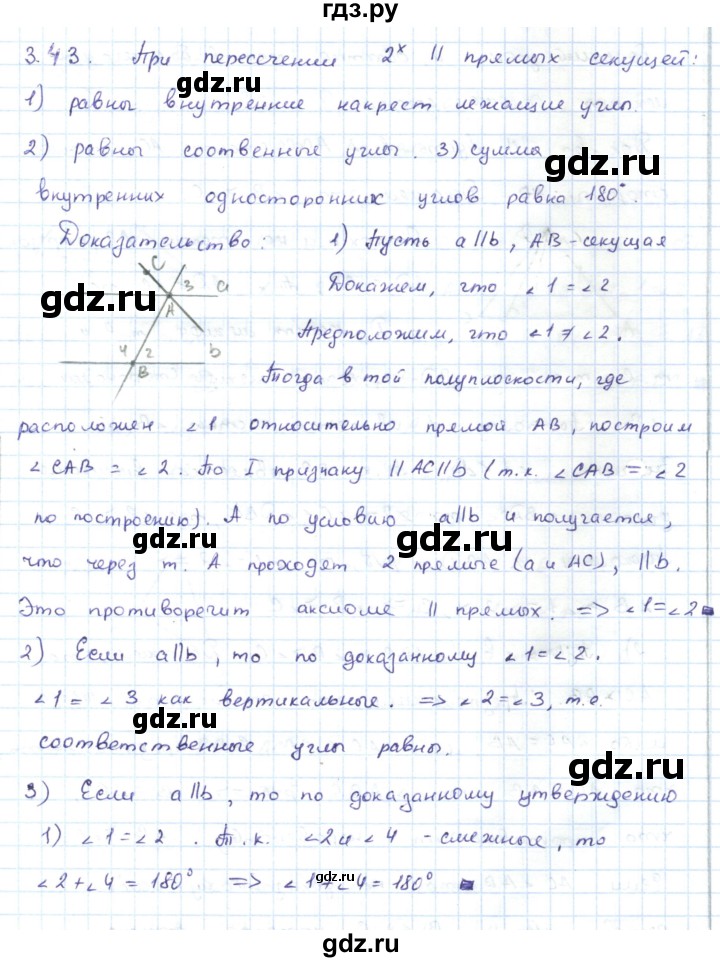 гдз.ру
3.43. При перессчении 2х || прямых секущей:
gdz.ru
1) равны внутренние накрест лежащие углы.
2) равны соотвенные углы. 3) сумма
gdz.ru
внутренних односторонних углов равна 180°.
Доказательство: 1) Пусть a||b, AB - секущая
C
3 a
A
gdz.ru
Докажем, что ∠1 = ∠2
Предположим, что ∠1 ≠ ∠2.
4 2 b
B
Тогда в той полуплоскости, где
расположен ∠1 относительно прямой AB, построим
∠CAB = ∠2. По I признаку || AC||b (т.к. ∠CAB = ∠2
по построению). А по условию a||b и получается,
gdz.ru gdz.ru
что через т. A проходят 2 прямые (a и AC), ||b.
Это противоречит аксиоме || прямых. => ∠1=∠2
2) Если a||b, то по доказанному ∠1=∠2.
∠1 = ∠3 как вертикальные. => ∠2=∠3, т.е.
gdz.ru
соответственные углы равны.
gdz.ru
3) Если a||b, то по доказанному утверждению
1) ∠1=∠2. Т.к. ∠2 и ∠4 - смежные, то
∠2+∠4 = 180°. => ∠1+∠4 = 180°
gdz.ru
gdz.ru